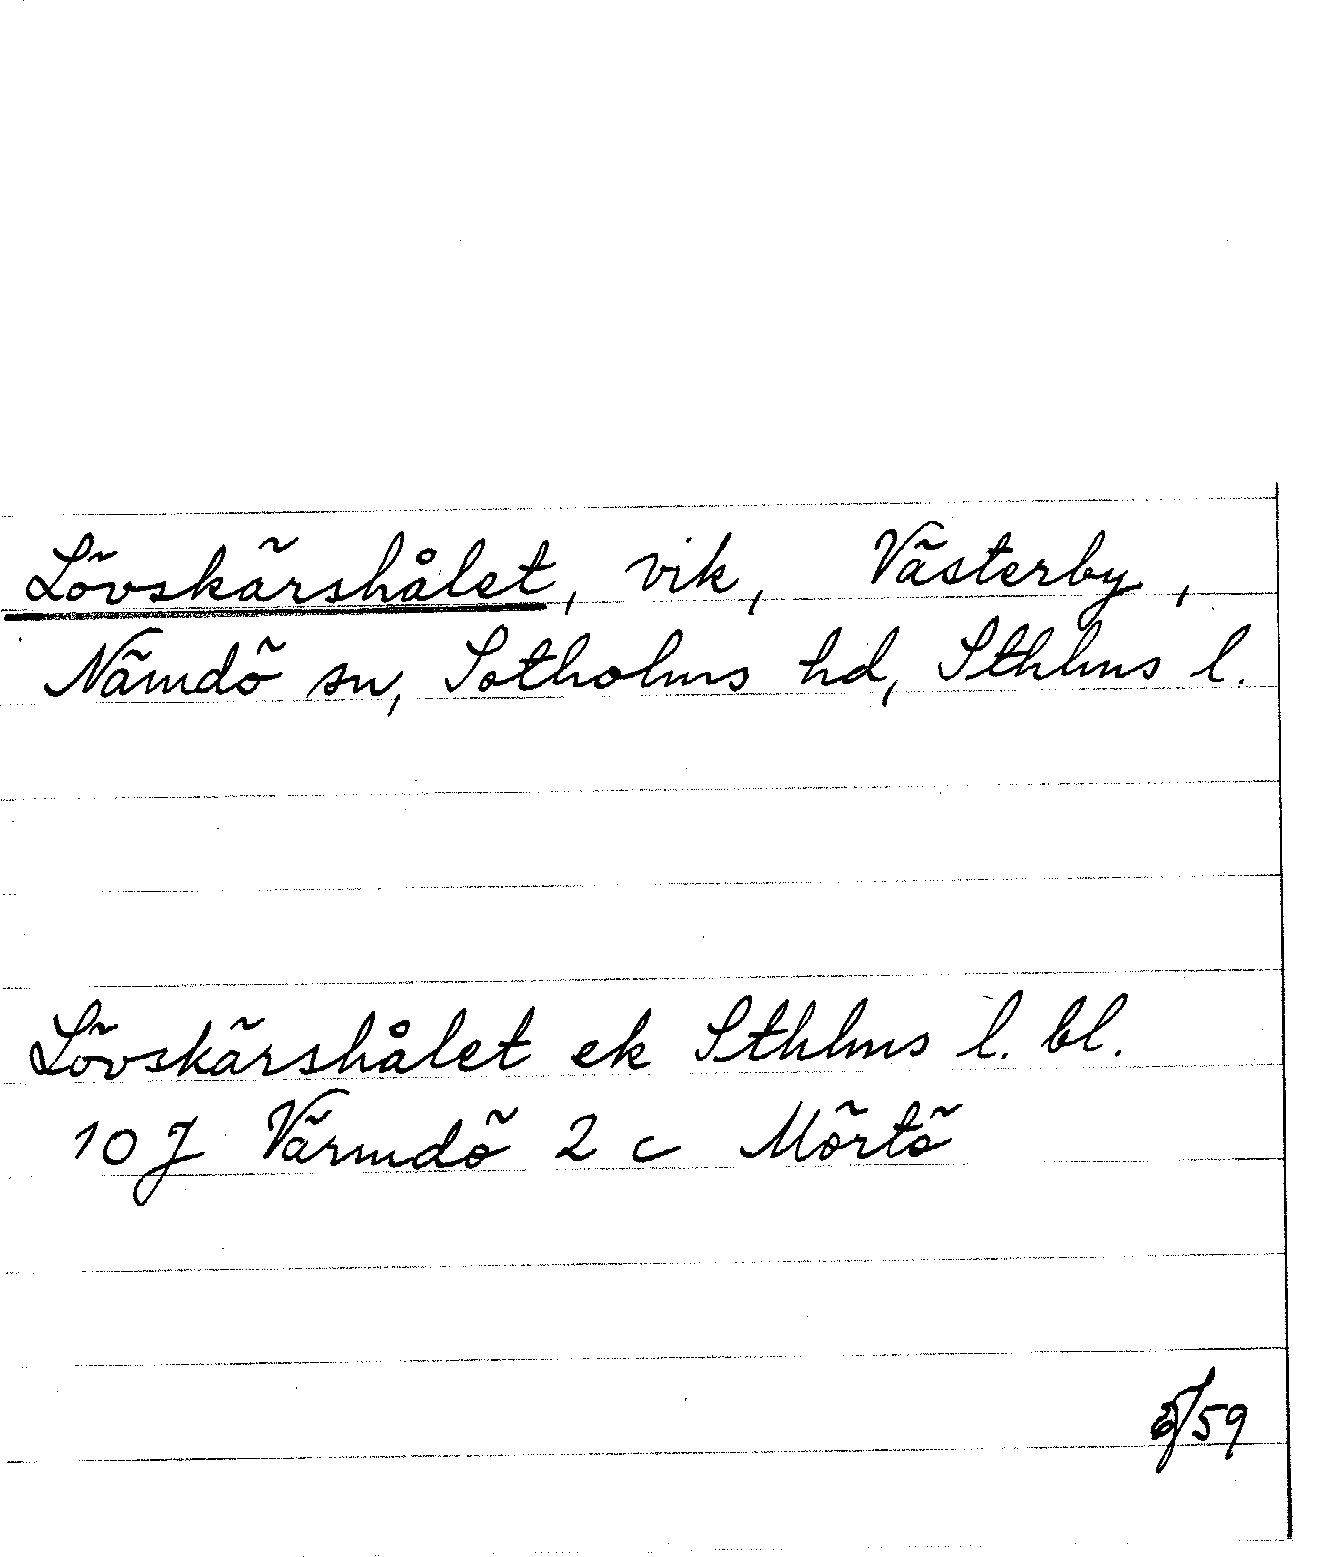 Lövskärshålet, vik, Västerby,
Nämdö sn, Sotholms hd, Sthlms l.
Lövskärshålet ek Sthlms l. bl.
10 J Värmdö 2 c Mörtö
/59